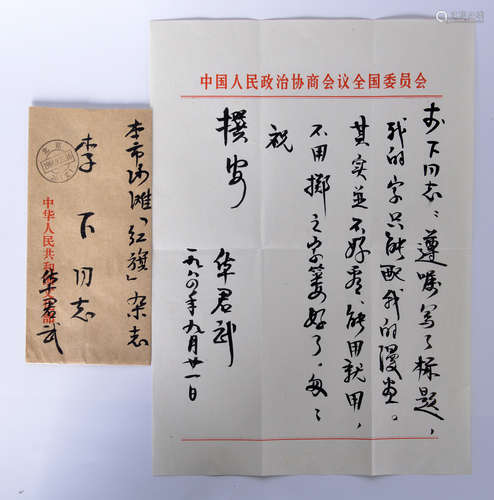 中国人民政治协商会议全国委员会
李下同志：遵嘱写了标题，
我的字只能配我的漫画。
其实并不好看，能用就用，
不用掷之字篓好了。匆匆
祝
撰安
华君武
一九八〇年九月廿一日
本市沙滩「红旗」杂志
李下同志
中华人民共和国文化部
华君武